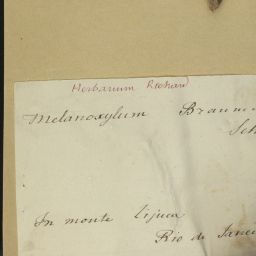 Herbarium Richard
Melanoxylum Braun
Sch
In monte Tijuca
Rio de Janei